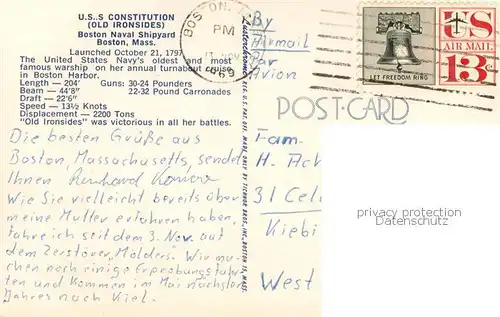 U.S..S CONSTITUTION
(OLD IRONSIDES)
Boston Naval Shipyard
Boston, Mass.
Launched October 21, 1797
The United States Navy's oldest and most
famous warship on her annual turnabout cruise
in Boston Harbor.
Length — 204' Guns: 30-24 Pounders
Beam — 44'8" 22-32 Pound Carronades
Draft — 22'6"
Speed — 13½ Knots
Displacement — 2200 Tons
"Old Ironsides" was victorious in all her battles.
Die besten Grüße aus
Boston, Massachusetts, sendet
Ihnen Reinhard
Wie Sie vielleicht bereits über
meine Mutter erfahren haben,
fahre ich seit dem 3. Nov. auf
dem Zerstörer „Mölders". Wir ma-
chen noch einige Erprobungsfahr-
ten und kommen im Mai nächsten
Jahres nach Kiel.
BOSTON,
PM
1969
By
Airmail
Par
Avion
LET FREEDOM RING
US
AIR MAIL
13c
POST CARD
Fam.
H.
31
Kiebi
West
privacy protection
Datenschutz
REG. U.S. PAT. OFF. MADE ONLY BY TICHNOR BROS., INC., BOSTON